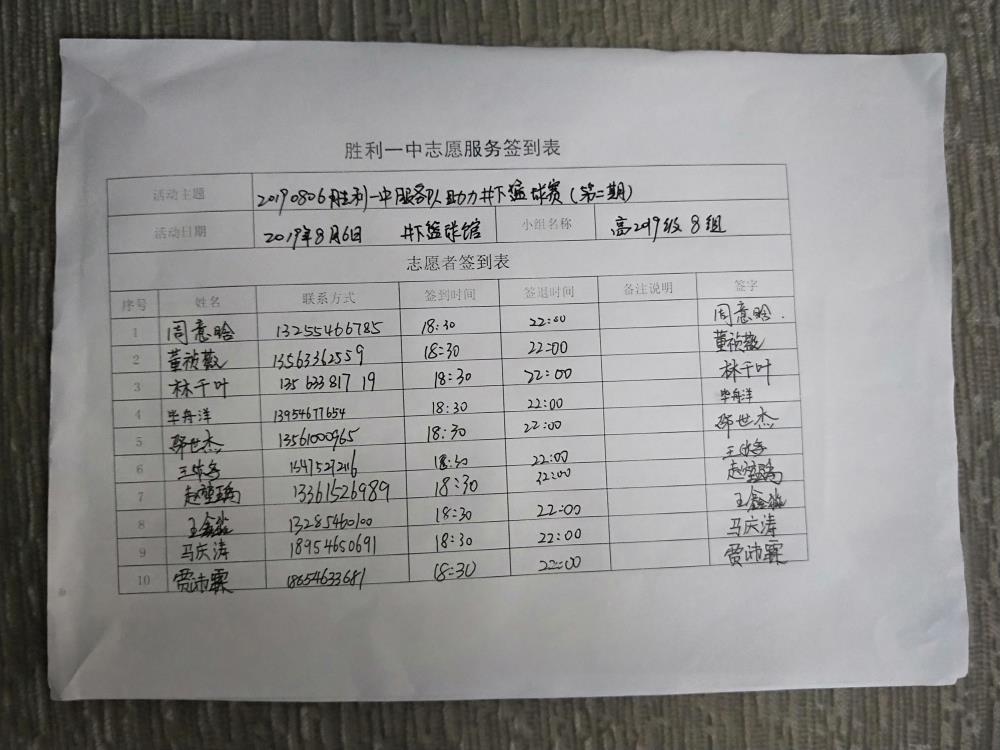 胜利一中志愿服务签到表
活动主题 20190806胜利一中服务队助力井下篮球赛(第二期)
活动日期 2019年8月6日 井下篮球馆 小组名称 高2019级 8组
志愿者签到表
序号 姓名 联系方式 签到时间 签退时间 备注说明 签字
1 周意晗 13255466785 18:30 22:00 周意晗
2 董祯薇 13563362559 18:30 22:00 董祯薇
3 林千叶 13563381719 18:30 22:00 林千叶
4 毕舟洋 13954677654 18:30 22:00 毕舟洋
5 邵世杰 13561000965 18:30 22:00 邵世杰
6 18:30 22:00
7 13361526989 18:30 22:00
8 王鑫淼 13285460100 18:30 22:00 王鑫淼
9 马庆涛 18954650691 18:30 22:00 马庆涛
10 贾沛霖 18654633681 18:30 22:00 贾沛霖